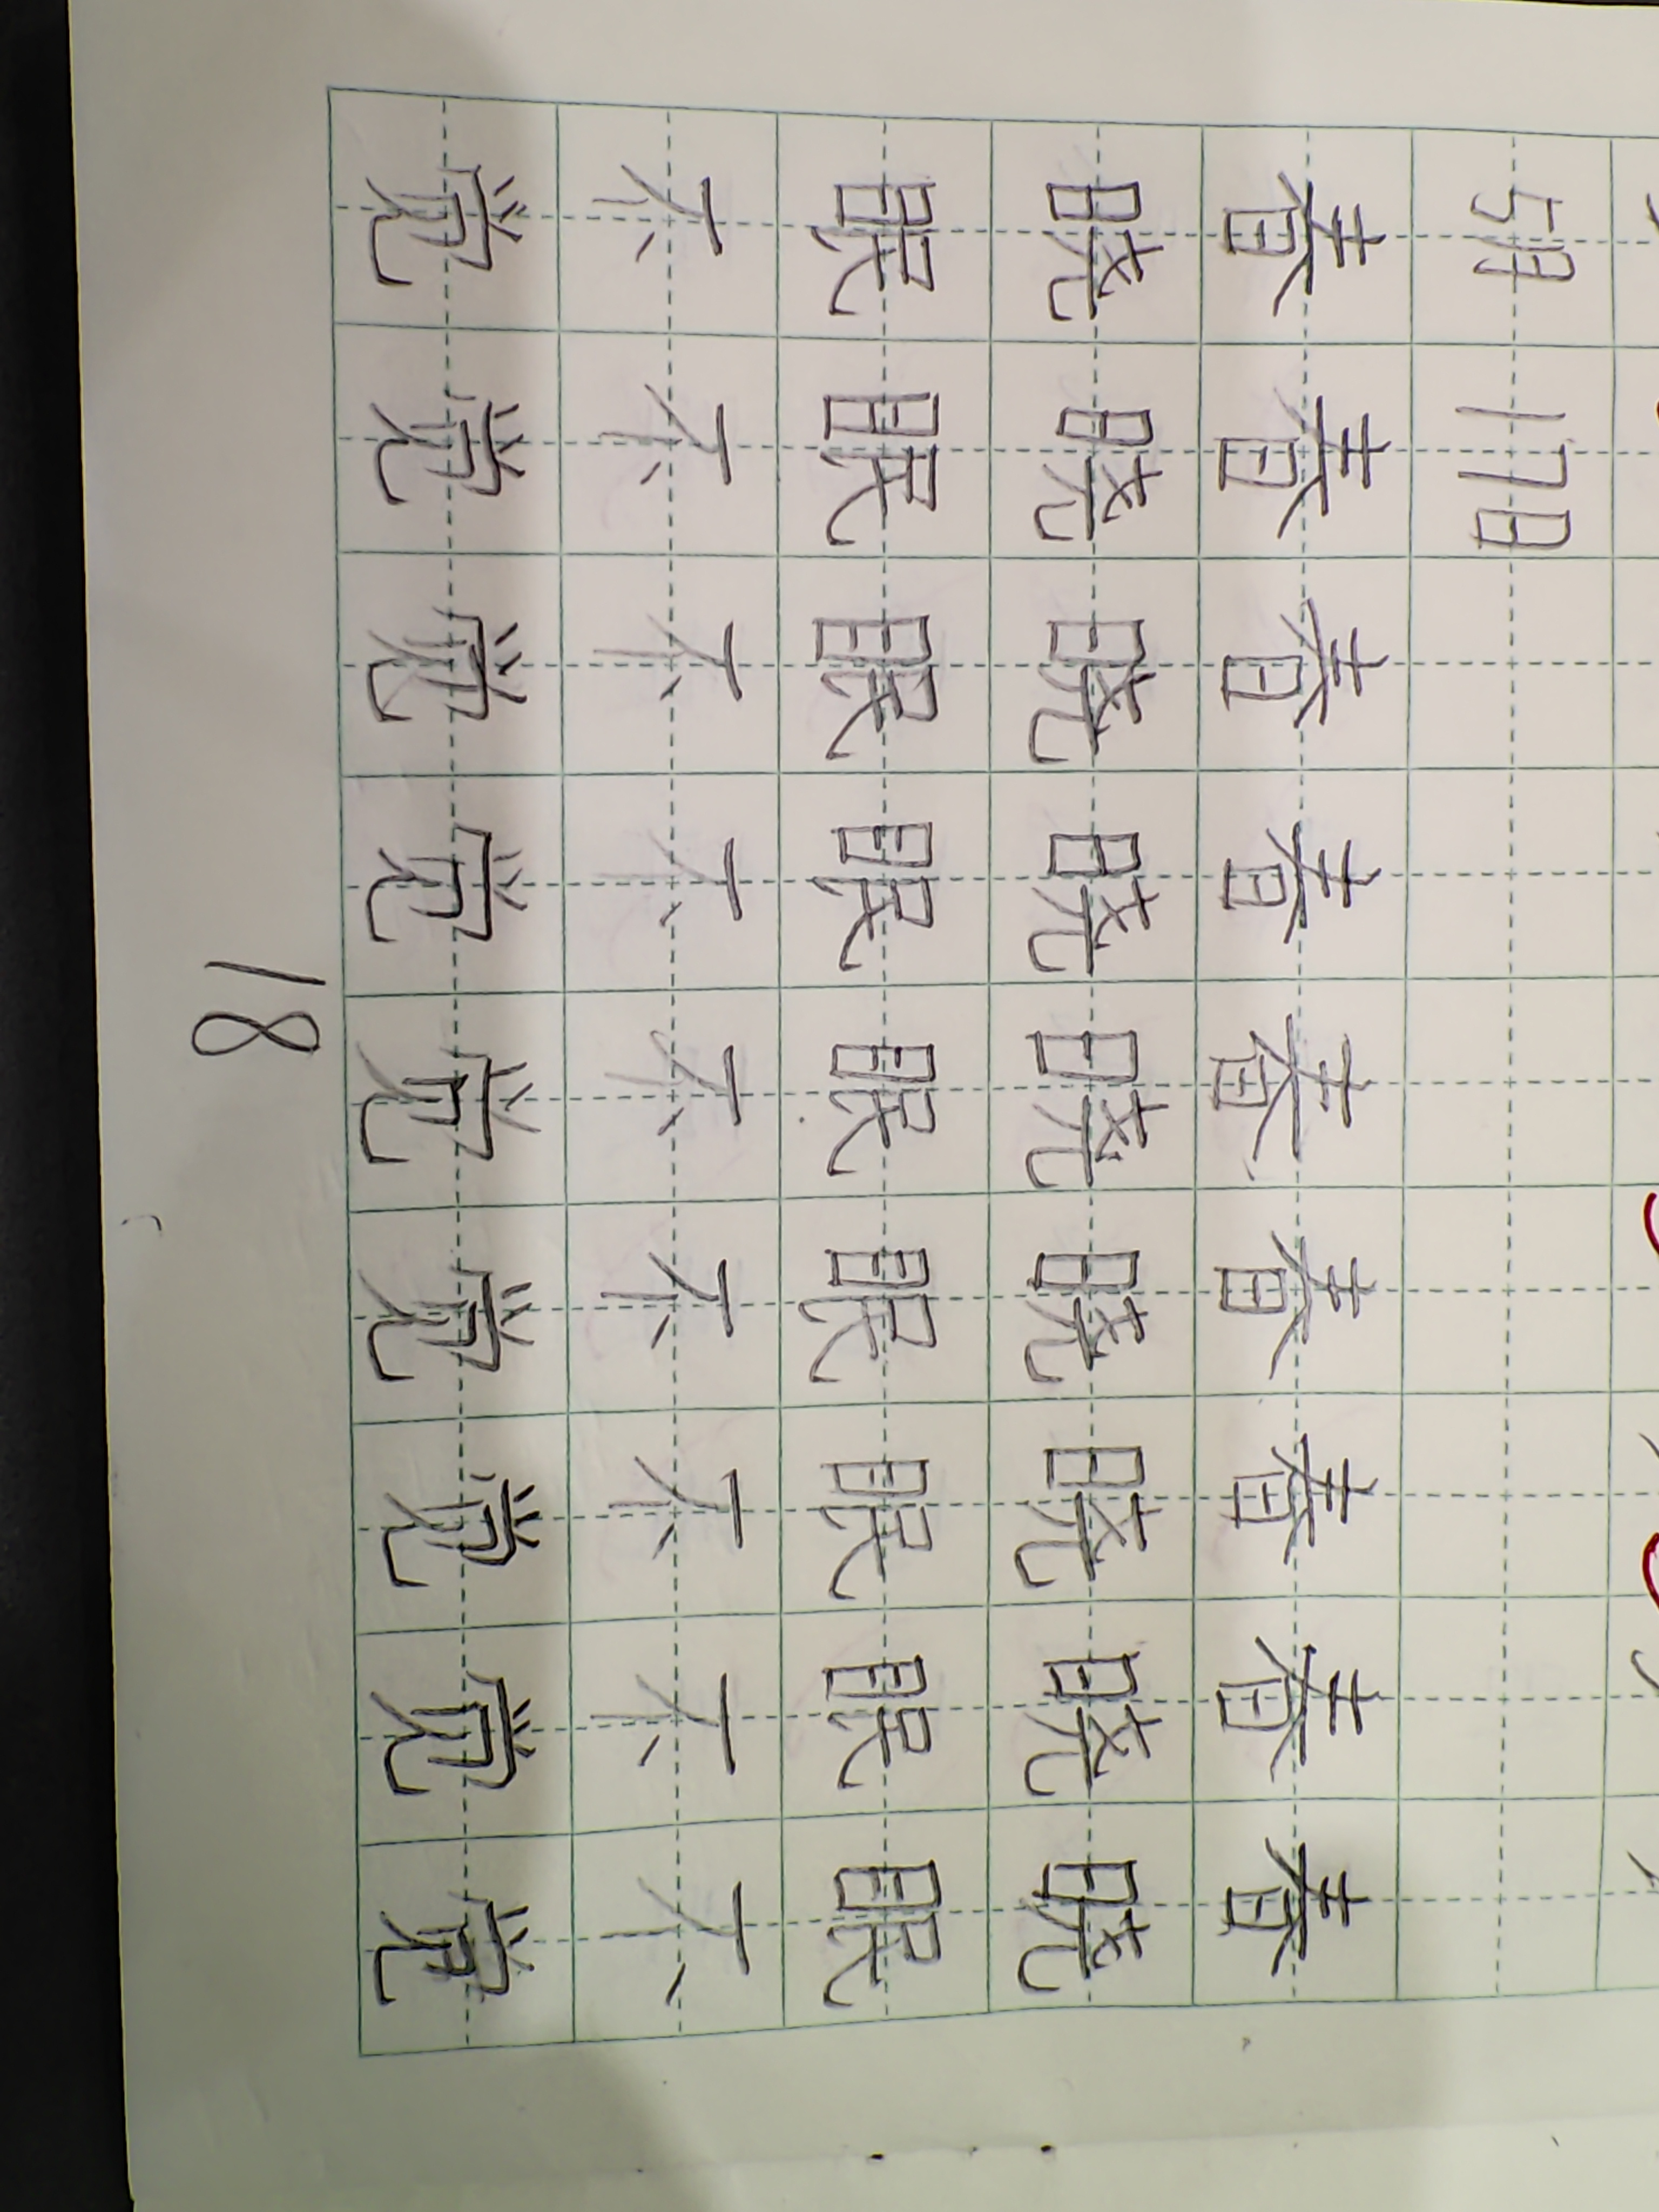 5月17日
春春春春春春春春春
晓晓晓晓晓晓晓晓晓
眠眠眠眠眠眠眠眠眠
不不不不不不不不不
觉觉觉觉觉觉觉觉觉
18